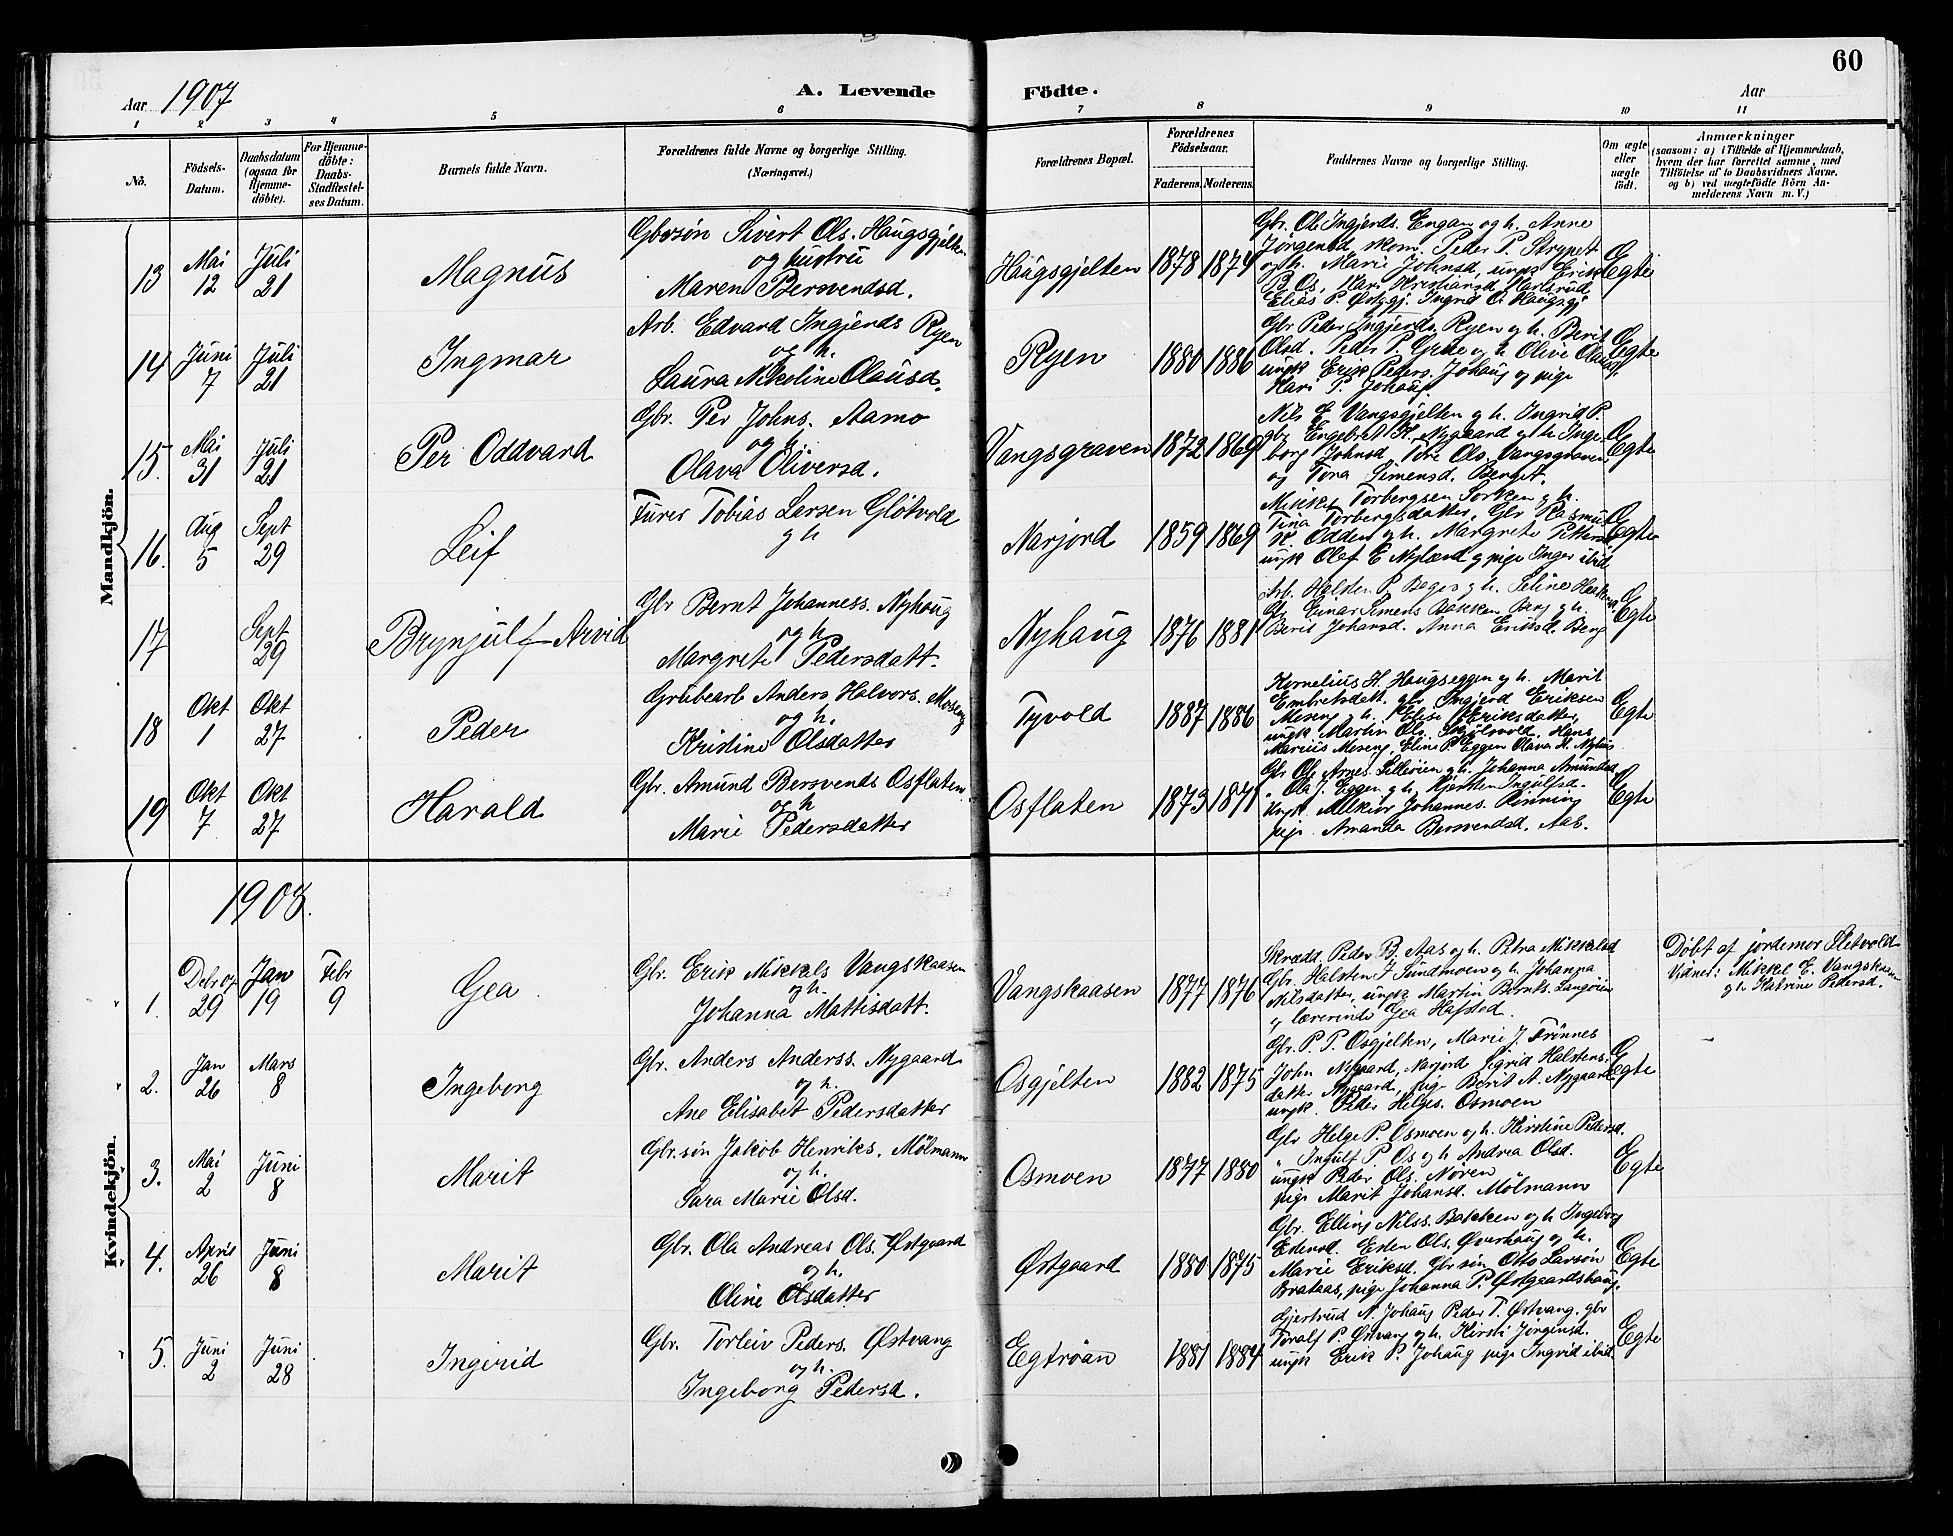 60
Aar 1907
A. Levende Födte.
Aar
1 2 3 4 5 6 7 8 9 10 11
No.
Födsels-Datum.
Daabsdatum (ogsaa for Hjemmedöbte).
For Hjemmedöbte: Daabs-Stadfæstelses Datum.
Barnets fulde Navn.
Forældrenes fulde Navne og borgerlige Stilling. (Næringsvei.)
Forældrenes Bopæl.
Forældrenes Födselsaar.
Faderens. Moderens.
Faddernes Navne og borgerlige Stilling.
Om ægte eller uægte födt.
Anmærkninger (saasom: a) i Tilfælde af Hjemmedaab, hvem der har forrettet samme, med Tilföielse af to Daabsvidners Navne. og b) ved uægtefödte Börn Anmelderens Navn m. V.)
Mandkjön.
13 Mai 12 Juli 21 Magnus
Gbrsön Sivert Ols. Haugsgjelten
og hustru
Maren Bersvendsd.
Haugsgjelten 1878 1874
Gbr. Ole Ingjerds. Engan og h. Anne
Jörgensd. skom. Peder P. Strypet
og h. Marie Johnsd, ungk Erik
P. Os, Kari Kristiansd. Harlsrud
Elias P. Østgj. Ingrid O. Haugsgj.
Egte
14 Juni 7 Juli 21 Ingmar
Arb. Edvard Ingjerds Ryen
og h.
Laura Nikoline Olausd.
Ryen 1880 1886
Gbr Peder Ingjerds. Ryen og h. Berit
Olsd. Peder P. Grue og h Olive Olausd.
ungk Erik Peders. Johaug og pige
Kari P. Johaug.
Egte
15. Mai 31 Juli 21 Per Oddvard
Gbr. Per Johns. Aamo
og h.
Olava Oliversd.
Vangsgraven 1872 1869
Nils E Vangsgjelten g h. Ingrid P.
gbr Engebret K. Nygaard og h Inge
borg Johnsd Tore Ols. Vangsgraven
og Tona Simensd. Berget.
Egte
16. Aug 5 Sept 29 Leif
Furer Tobias Larsen Glötvold
g h
Narjord 1859 1869
Mikkel Torbergsen Sorken g h.
Tina Torbergsdatter, Gbr Rasmus
K. Odden g h. Margrete Pettersd.
ungk Olaf E Nyland g pige Inger ibid
Egte
17 Sept 29 Brynjulf Arvid
Gbr Bernt Johanness. Nyhaug
og h
Margrete Pedersdatt.
Nyhaug 1876 1881
Arb. Halsten P Bager g h. Seline
Gb. Einar Simens Bakken Berg g h.
Berit Johansd. Anna Eriksd. Berg
Egte
18 Okt 1 Okt 27 Peder
Grubearb Anders Halvors. Moseng
og h.
Kristine Olsdatter
Tyvold 1887 1886
Kornelius H. Haugseggen g h. Marit
Embretsdatt. gbr Ingjerd Eriksen
Meseng g h. Elise Eriksdatter,
ungk Martin Ols. Skjölsvold, Hans
Marius Meseng, Eline P. Eggen Olava H. Nyhus
Egte
19 Okt 7 Okt 27 Harald
Gbr. Amund Bersvends Osflaten
og h
Marie Pedersdatter
Osflaten 1873 1871
Gbr Ole Arnes. Lilleöien g h. Johanna Amundsd
" Ola J. Eggen g h, Kjersten Ingulfsd.
Ungk. Melkior Johannes. Rönning
pige Amanda Bersvendsd. Aas.
Egte
Kvindekjön.
1908.
1. Debr 07 29 Jan 19 Febr 9 Gea
Gbr. Erik Mikkels Vangskaasen
og h.
Johanna Mattisdatt.
Vangskaasen 1877 1876
Skrædd Peder B. Aas og h. Petra Mikkelsd
Gbr. Halsten J Sundmoen g h. Johanna
Nilsdatter, ungk Martin Bernts. Langöien
g lærerinde Gea Hafsted.
Döbt af jordemor Sletvold
Vidner: Mikkel E. Vangskaasen
g h Katrine Pedersd.
2. Jan 26 Mars 8 Ingeborg
Gbr. Anders Anderss. Nygaard
og h.
Ane Elisabet Pedersdatter
Osgjelten 1882 1875
Gbr. P. T. Osgjelten, Marie J. Trönnes
John Nygaard, Narjord Sigrid Halstens-
datter Nygaard, pige Berit A. Nygaard
ungk. Peder Helges. Osmoen
Egte
3. Mai 2 Juni 8 Marit
Gbr.sön Jakob Henriks. Mölmann
og h.
Sara Marie Olsd.
Osmoen 1877 1880
Gbr Helge P. Osmoen og h. Kirstine Pedersd.
" Ingulf P. Os g h Andrea Olsd.
ungk Peder Ols. Nören
pige Marit Johansd. Mölmann
Egte
4. April 26 Juni 8 Marit
Gbr. Ola Andreas Ols. Østgaard
og h.
Oline Olsdatter
Østgaard 1880 1875
Gbr. Elling Nilss. Bakken og h Ingeborg
Estensd. Esten Ols. Øverhaug g h.
Marie Eriksd. Gbr sön Otto Larsön
Brataas, pige Johanna P. Østgaardshaug.
Egte
5. Juni 2 Juni 28 Ingerid
Gbr. Torleiv Peders. Østvang
og h.
Ingeborg Pedersd.
Egtröan 1881 1884
Gjertrud N. Johaug Peder T. Østvang. gbr
Toralf P. Østvang g h. Kirsti Jörgensd.
ungk Erik P. Johaug pige Ingrid ibid.
Egte